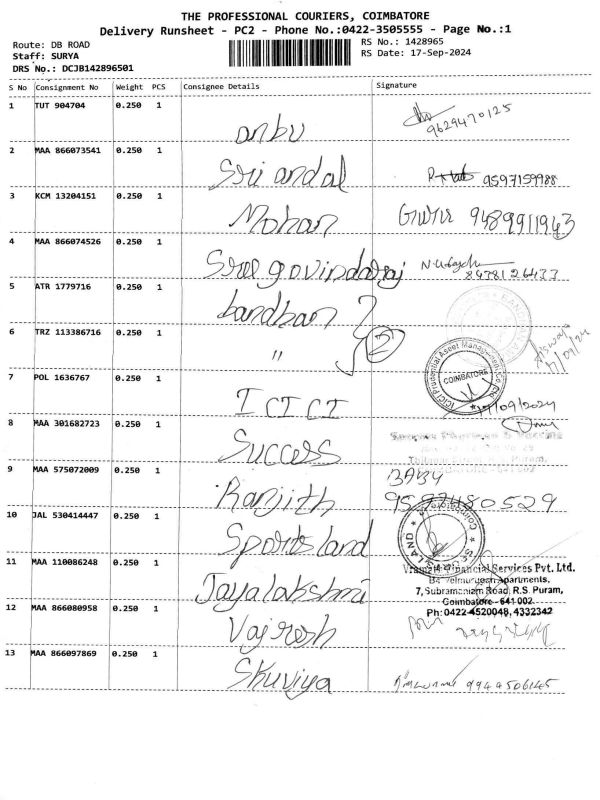 THE PROFESSIONAL COURIERS, COIMBATORE
Delivery Runsheet - PC2 - Phone No.:0422-3505555 - Page No.:1
Route: DB ROAD
RS No.: 1428965
Staff: SURYA
RS Date: 17-Sep-2024
DRS No.: DCJB142896501
S No Consignment No Weight PCS Consignee Details Signature
1 TUT 904704 0.250 1
anbu 9629470125
2 MAA 866073541 0.250 1
Sri andal 9597159988
3 KCM 13204151 0.250 1
Mohan 9489911943
4 MAA 866074526 0.250 1
Sree govindaraj 8438126433
5 ATR 1779716 0.250 1
bandhan
6 TRZ 113386716 0.250 1
" 2
ICICI Prudential Asset Management Co Ltd
COIMBATORE
7 POL 1636767 0.250 1
ICICI 17/09/2024
8 MAA 301682723 0.250 1
Success
9 MAA 575072009 0.250 1
BABY
Ranjith 9597480529
10 JAL 530414447 0.250 1
Sportsland
11 MAA 110086248 0.250 1
Financial Services Pvt. Ltd.
Apartments,
7, Subramaniam Road, R.S. Puram,
Jayalakshmi
Coimbatore - 641 002
12 MAA 866080958 0.250 1
Ph: 0422-4520048, 4332342
Vajresh
13 MAA 866097869 0.250 1
Skuviya 9944506145